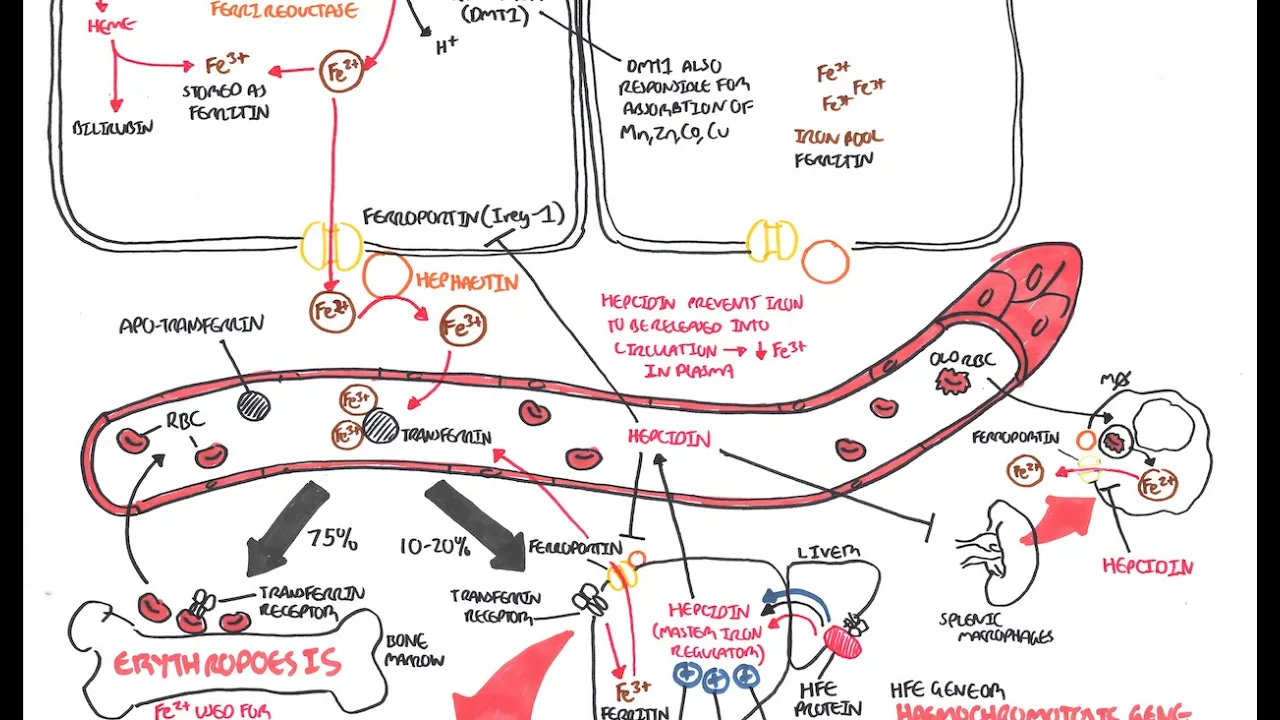 FERRIREDUCTASE
HEME
(DMT1)
H+
Fe3+
Fe2+
STORED AS
FERRITIN
BILIRUBIN
DMT1 ALSO
RESPONSIBLE FOR
ABSORBTION OF
Mn, Zn, Co, Cu
Fe3+
Fe3+
Fe3+
IRON POOL
FERRITIN
FERROPORTIN (Ireg-1)
HEPHAESTIN
Fe2+
Fe3+
APO-TRANSFERRIN
HEPCIDIN PREVENTS IRON
TO BE RELEASED INTO
CIRCULATION → ↓ Fe3+
IN PLASMA
OLD RBC
MØ
RBC
Fe3+
Fe3+
TRANSFERRIN
HEPCIDIN
FERROPORTIN
Fe2+
Fe2+
75%
10-20%
FERROPORTIN
LIVER
HEPCIDIN
TRANSFERRIN
RECEPTOR
TRANSFERRIN
RECEPTOR
HEPCIDIN
(MASTER IRON
REGULATOR)
SPLENIC
MACROPHAGES
BONE
MARROW
ERYTHROPOESIS
Fe3+
FERRITIN
+
+
+
HFE
PROTEIN
HFE GENE OR
HAEMOCHROMOTOSIS GENE
Fe2+ USED FOR